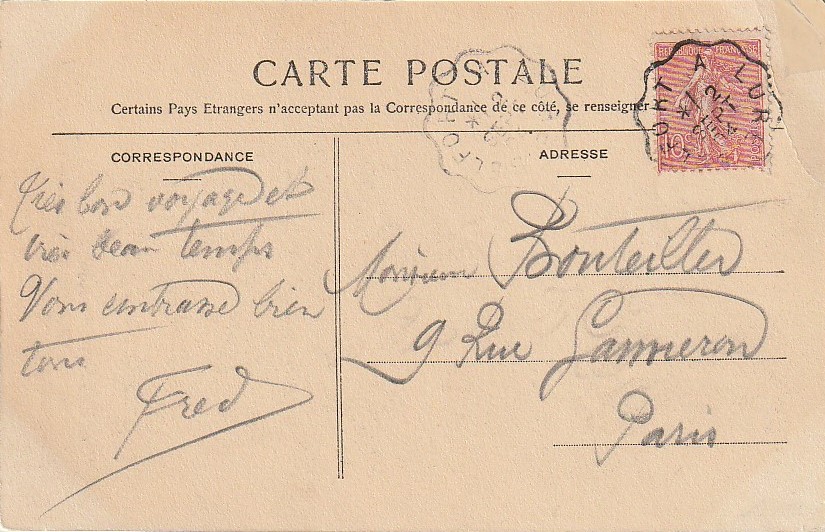 CARTE POSTALE
Certains Pays Etrangers n'acceptant pas la Correspondance de ce côté, se renseigner
CORRESPONDANCE
Très bon voyage et
très beau temps
Vous embrasse bien
tous
Fred
ADRESSE
Monsieur Bouteiller
9 Rue Ganneron
Paris
REPUBLIQUE FRANÇAISE
10
A LURE
SEPT